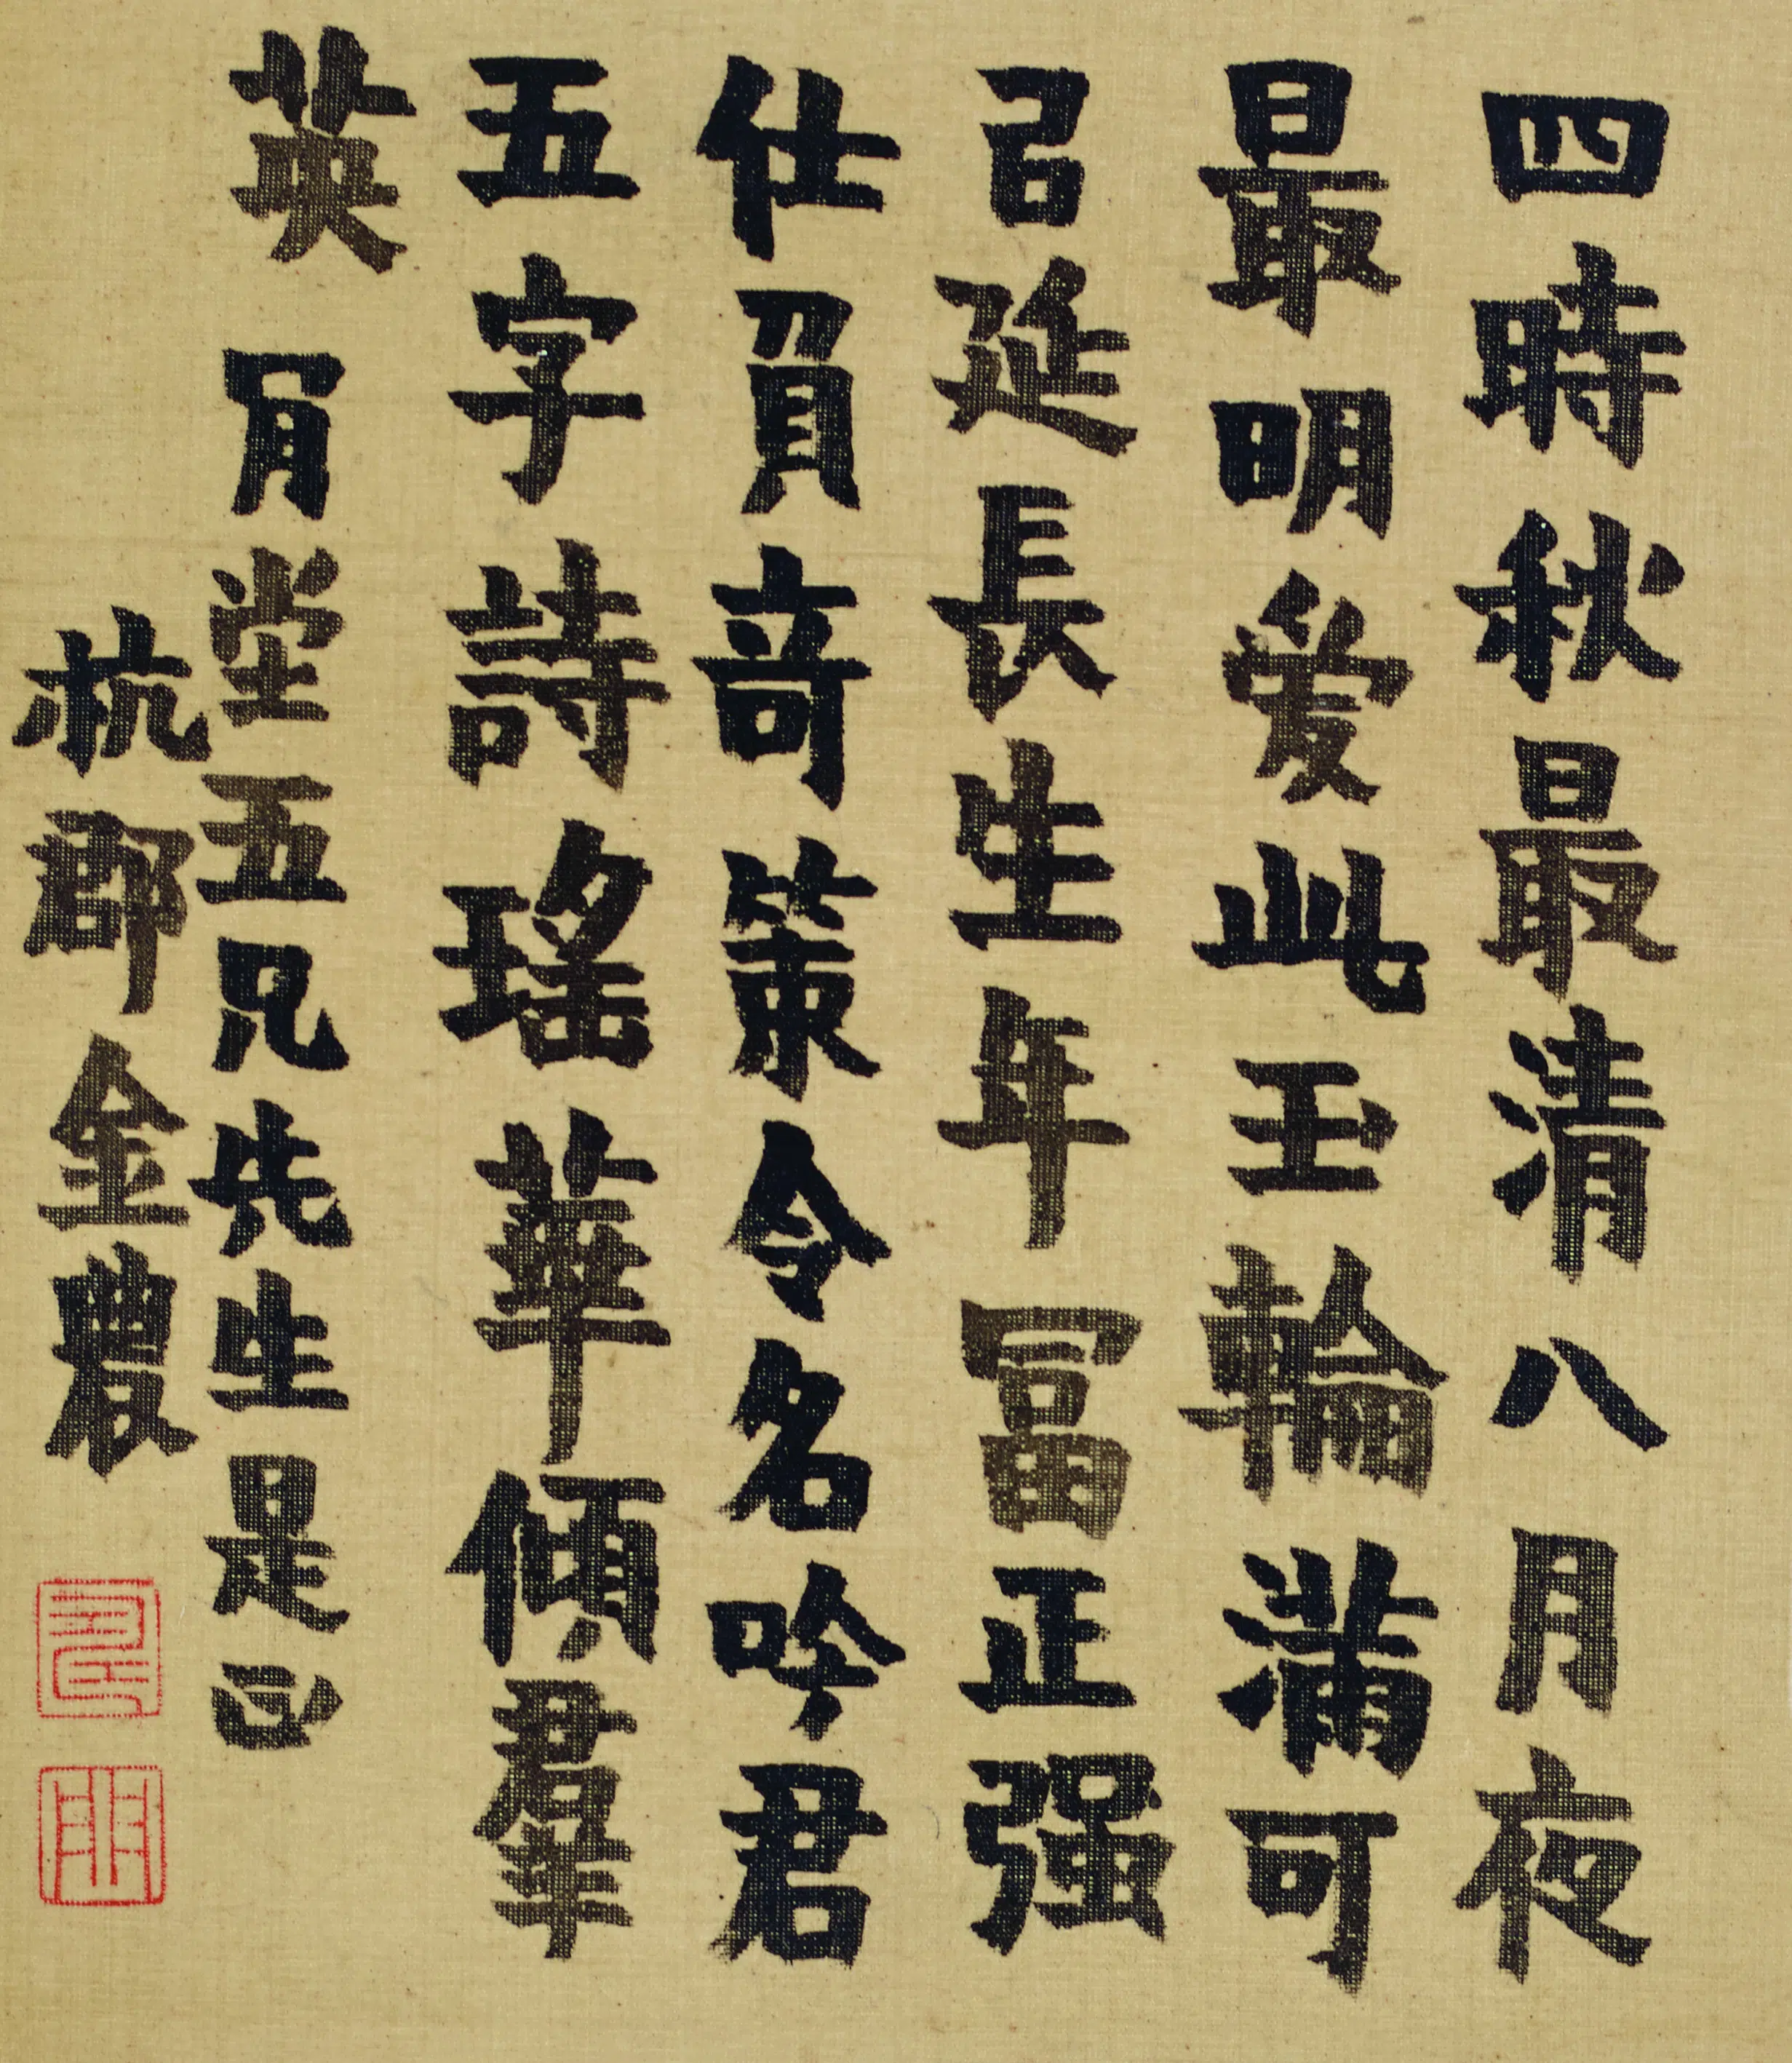 四時秋最清八月夜
最明爱此玉輪滿可
㠯延長生年冨正强
仕負竒策令名吟君
五字詩瑤華傾羣
英 肎堂五兄先生是正
杭郡金農